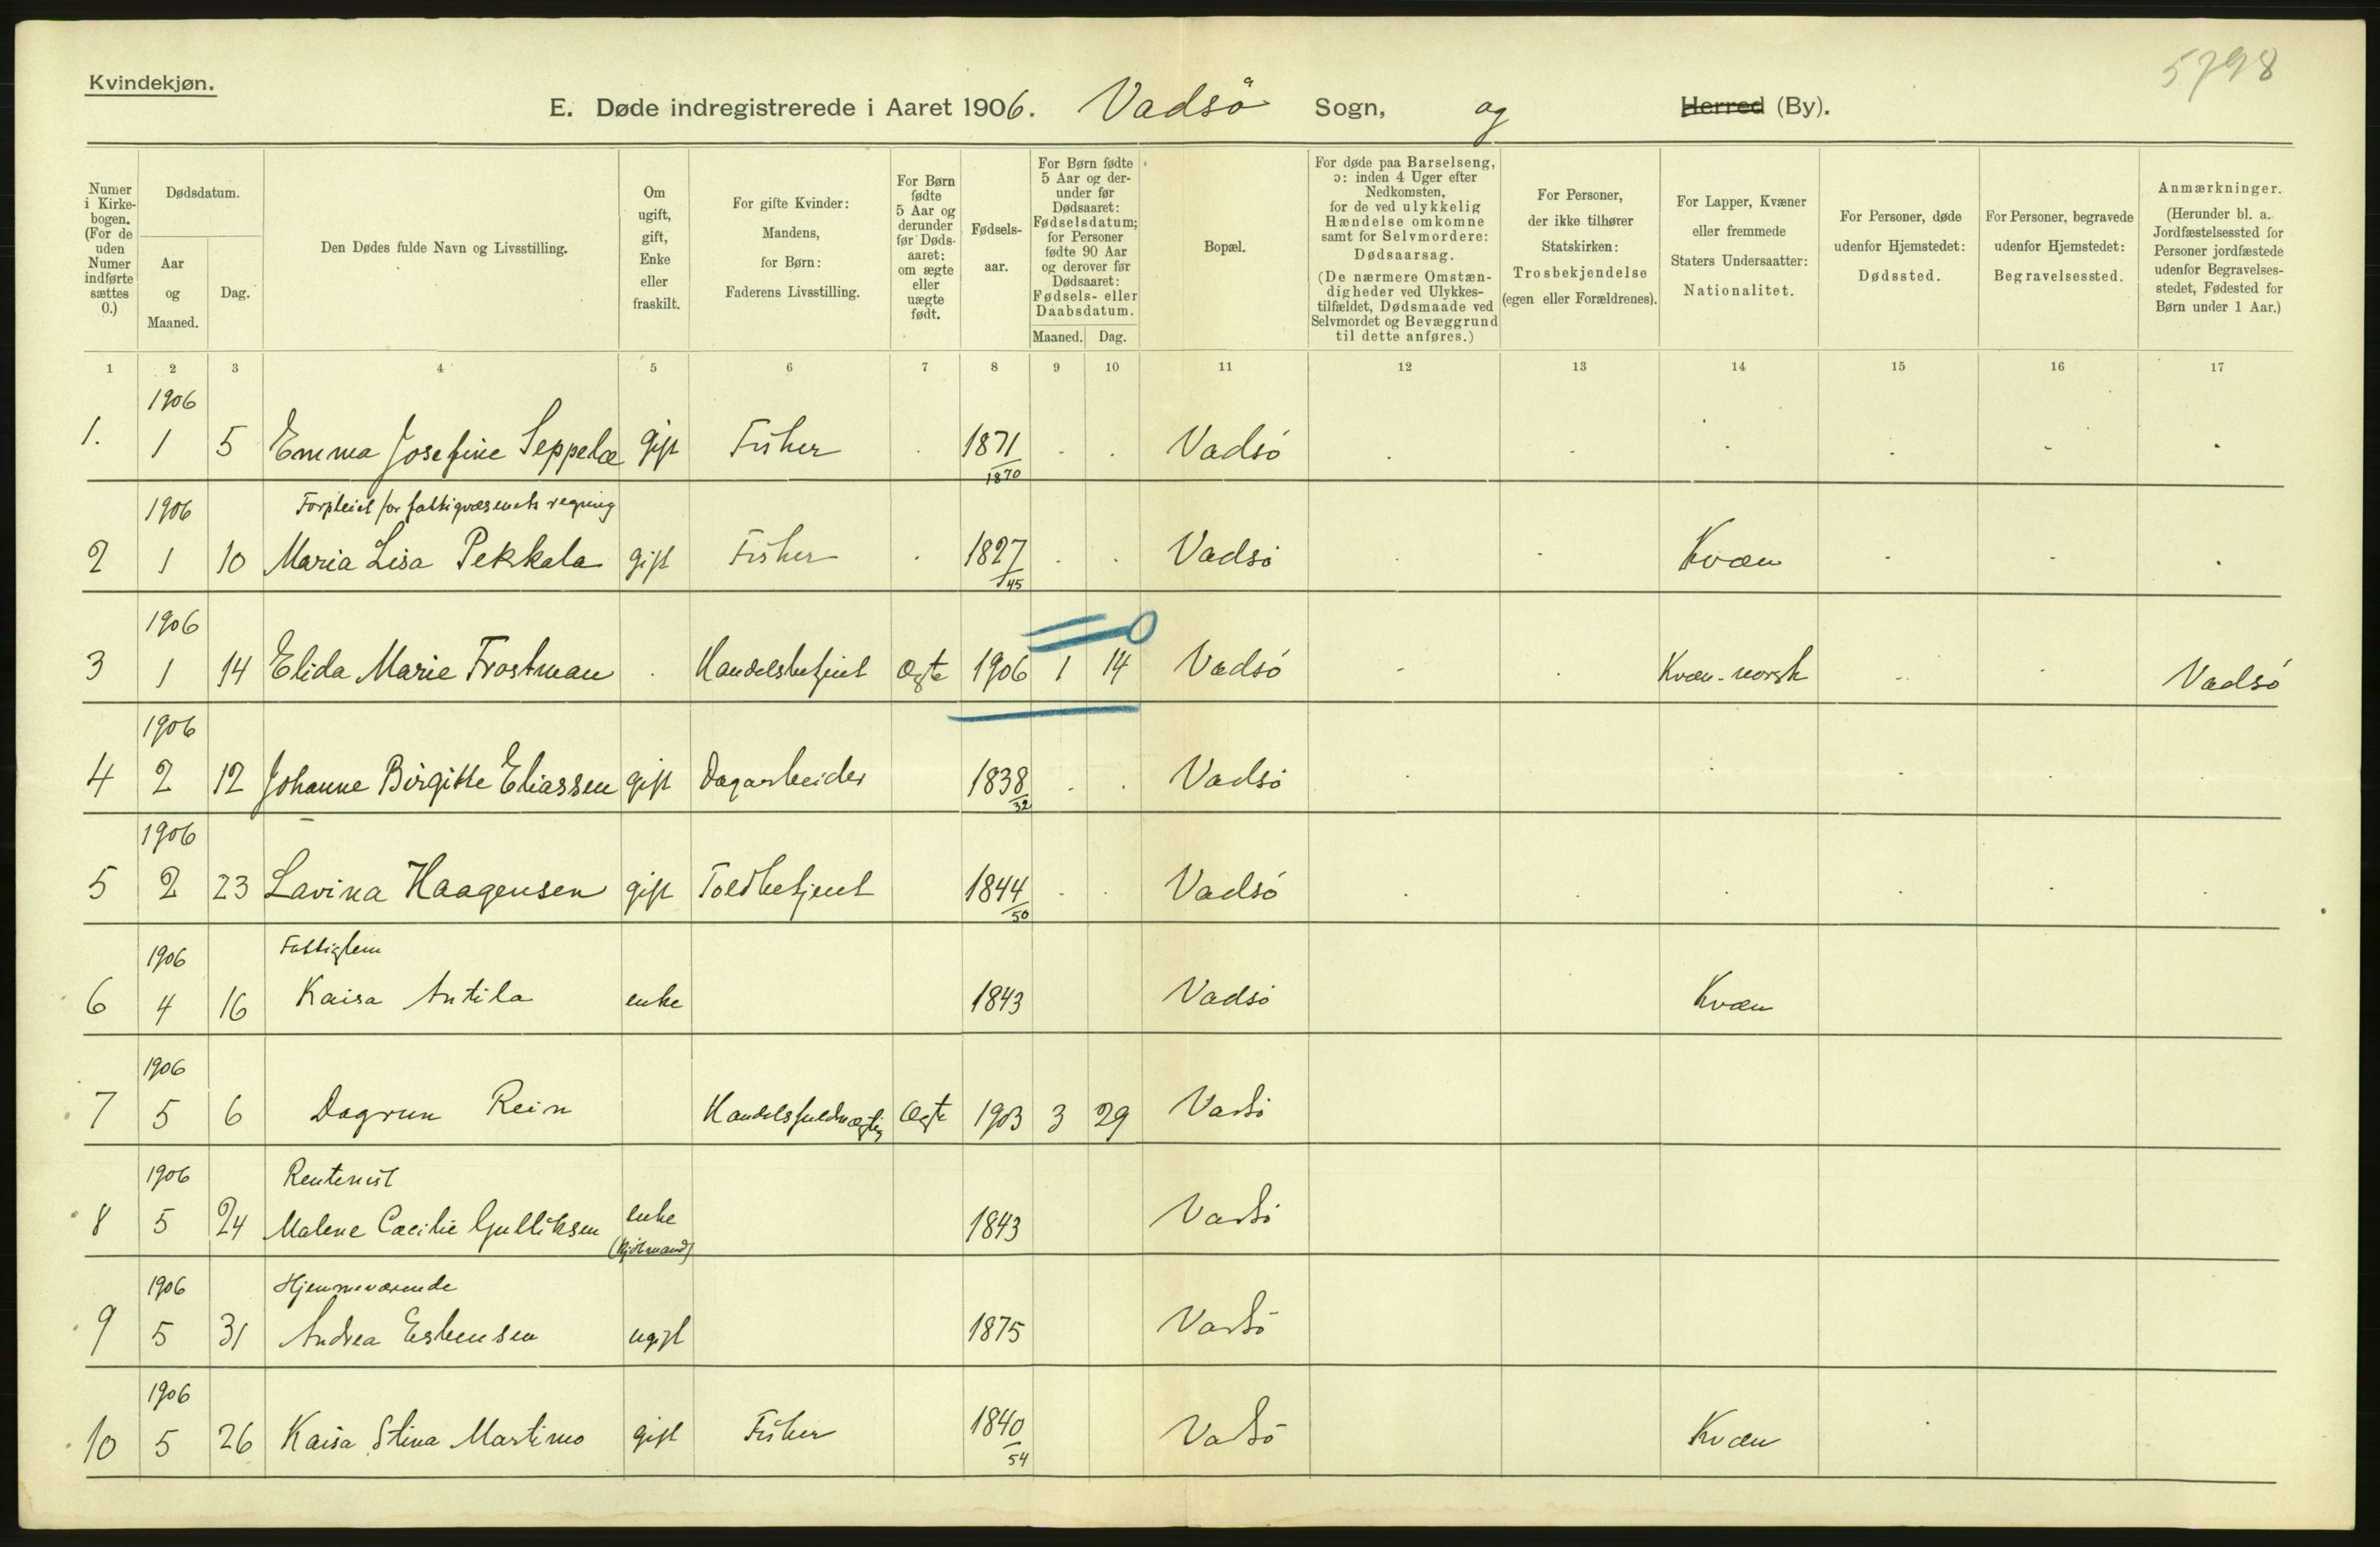 5798
Kvindekjøn.
E. Døde indregistrerede i Aaret 1906. Vadsö Sogn, og Herred (By).
Numer i Kirkebogen. (For de uden Numer indførte sættes 0.)
Dødsdatum.
Aar og Maaned.
Dag.
Den Dødes fulde Navn og Livsstilling.
Om ugift, gift, Enke eller fraskilt.
For gifte Kvinder: Mandens, for Børn: Faderens Livsstilling.
For Børn fødte 5 Aar og derunder før Dødsaaret: om ægte eller uægte født.
Fødselsaar.
For Børn fødte 5 Aar og derunder før Dødsaaret: Fødselsdatum; for Personer fødte 90 Aar og derover før Dødsaaret: Fødsels- eller Daabsdatum.
Maaned. Dag.
Bopæl.
For døde paa Barselseng, ɔ: inden 4 Uger efter Nedkomsten, for de ved ulykkelig Hændelse omkomne samt for Selvmordere: Dødsaarsag.
(De nærmere Omstændigheder ved Ulykkestilfældet, Dødsmaade ved Selvmordet og Bevæggrund til dette anføres.)
For Personer, der ikke tilhører Statskirken: Trosbekjendelse (egen eller Forældrenes).
For Lapper, Kvæner eller fremmede Staters Undersaatter: Nationalitet.
For Personer, døde udenfor Hjemstedet: Dødssted.
For Personer, begravede udenfor Hjemstedet: Begravelsessted.
Anmærkninger.
(Herunder bl. a. Jordfæstelsessted for Personer jordfæstede udenfor Begravelsesstedet, Fødested for Børn under 1 Aar.)
1 2 3 4 5 6 7 8 9 10 11 12 13 14 15 16 17
1906
1. 1 5 Emma Josefine Seppelæ gift Fisker 1871 Vadsö
1870
1906 Forpleiet for fattigvæsenets regning
2 1 10 Maria Lisa Pekkala gift Fisker 1827 Vadsö Kvæn
45
1906
3 1 14 Elida Marie Frostman Handelsbetjent Ægte 1906 1 14 Vadsö Kvæn-norsk Vadsö
1906
4 2 12 Johanne Birgitte Eliassen gift Dagarbeider 1838 Vadsö
32
1906
5 2 23 Lavina Haagensen gift Toldbetjent 1844 Vadsö
50
1906 Fattiglem
6 4 16 Kaisa Antila enke 1843 Vadsö Kvæn
1906
7 5 6 Dagrun Rein Handelsfuldmægtig Ægte 1903 3 29 Vadsö
1906 Rentenist
8 5 24 Malene Cæcilie Gulliksen enke 1843 Vadsö
1906 Hjemmeværende
9 5 31 Andrea Esbensen ugift 1875 Vadsö
1906
10 5 26 Kaisa Stina Martimo gift Fisker 1840 Vadsö Kvæn
54